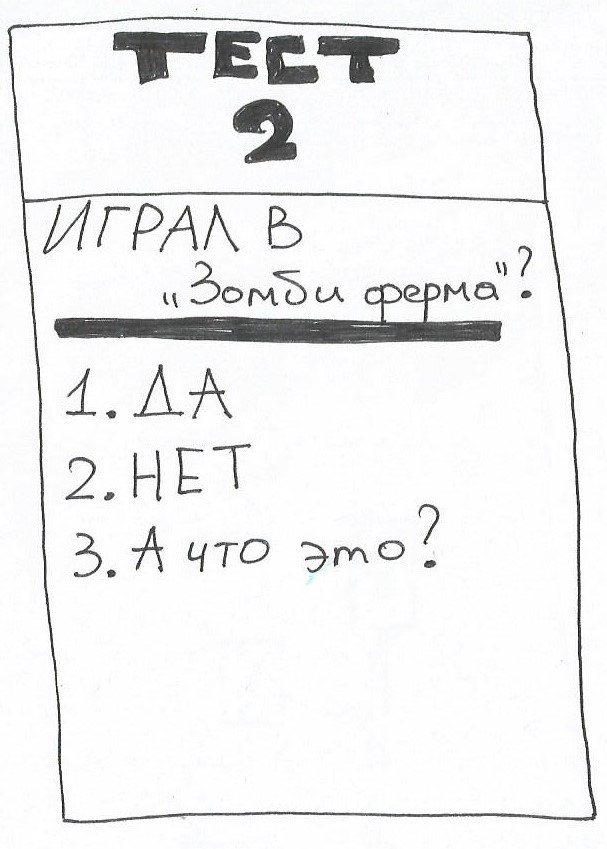 ТЕСТ
2
ИГРАЛ В
„Зомби ферма"?
1. ДА
2. НЕТ
3. А что это?